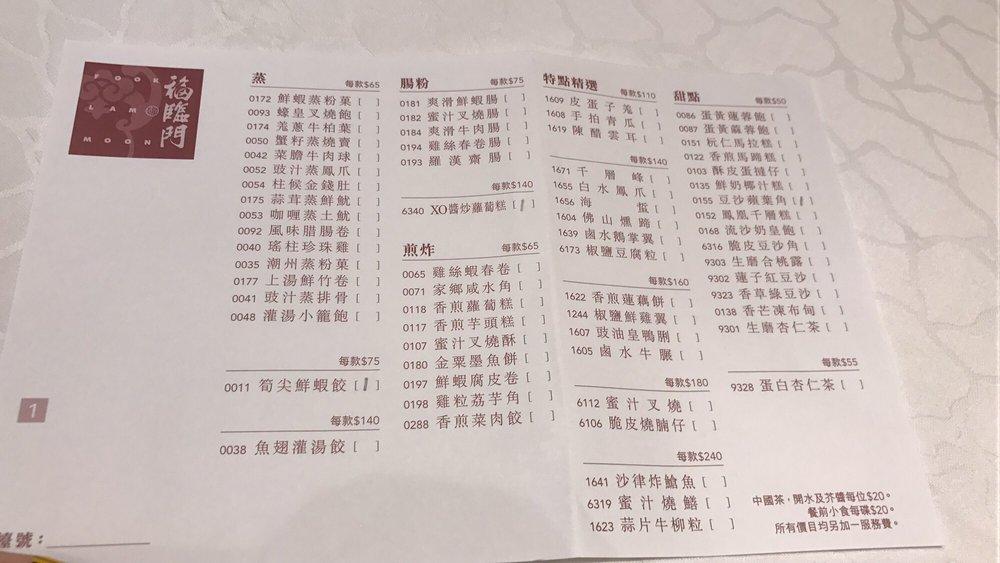 FOOK
LAM
MOON
福臨門
蒸 每款$65
0172 鮮蝦蒸粉菓 [ ]
0093 蠔皇叉燒飽 [ ]
0174 羗蔥牛柏葉 [ ]
0050 蟹籽蒸燒賣 [ ]
0042 菜膽牛肉球 [ ]
0052 豉汁蒸鳳爪 [ ]
0054 柱候金錢肚 [ ]
0175 蒜茸蒸鮮魷 [ ]
0053 咖喱蒸土魷 [ ]
0092 風味腊腸卷 [ ]
0040 瑤柱珍珠雞 [ ]
0035 潮州蒸粉菓 [ ]
0177 上湯鮮竹卷 [ ]
0041 豉汁蒸排骨 [ ]
0048 灌湯小籠飽 [ ]
每款$75
0011 筍尖鮮蝦餃 [ ]
每款$140
0038 魚翅灌湯餃 [ ]
腸粉 每款$75
0181 爽滑鮮蝦腸 [ ]
0182 蜜汁叉燒腸 [ ]
0184 爽滑牛肉腸 [ ]
0194 雞絲春卷腸 [ ]
0193 羅漢齋腸 [ ]
每款$140
6340 XO醬炒蘿蔔糕 [ ]
煎炸 每款$65
0065 雞絲蝦春卷 [ ]
0071 家鄉咸水角 [ ]
0118 香煎蘿蔔糕 [ ]
0117 香煎芋頭糕 [ ]
0107 蜜汁叉燒酥 [ ]
0180 金粟墨魚餅 [ ]
0197 鮮蝦腐皮卷 [ ]
0198 雞粒荔芋角 [ ]
0288 香煎菜肉餃 [ ]
特點精選 每款$110
1609 皮蛋子羗 [ ]
1608 手拍青瓜 [ ]
1619 陳醋雲耳 [ ]
每款$140
1671 千層峰 [ ]
1655 白水鳳爪 [ ]
1656 海蜇 [ ]
1604 佛山燻蹄 [ ]
1639 鹵水鵝掌翼 [ ]
6173 椒鹽豆腐粒 [ ]
每款$160
1622 香煎蓮藕餅 [ ]
1244 椒鹽鮮雞翼 [ ]
1607 豉油皇鴨脷 [ ]
1605 鹵水牛𦟌 [ ]
每款$180
6112 蜜汁叉燒 [ ]
6106 脆皮燒腩仔 [ ]
每款$240
1641 沙律炸鯧魚 [ ]
6319 蜜汁燒鱔 [ ]
1623 蒜片牛柳粒 [ ]
甜點 每款$50
0086 蛋黃蓮蓉飽 [ ]
0087 蛋黃蔴蓉飽 [ ]
0151 杬仁馬拉糕 [ ]
0122 香煎馬蹄糕 [ ]
0103 酥皮蛋撻仔 [ ]
0135 鮮奶椰汁糕 [ ]
0155 豆沙蘋葉角 [ ]
0152 鳳凰千層糕 [ ]
0168 流沙奶皇飽 [ ]
6316 脆皮豆沙角 [ ]
9303 生磨合桃露 [ ]
9302 蓮子紅豆沙 [ ]
9323 香草綠豆沙 [ ]
0138 香芒凍布甸 [ ]
9301 生磨杏仁茶 [ ]
每款$55
9328 蛋白杏仁茶 [ ]
中國茶，開水及芥醬每位$20。
餐前小食每碟$20。
所有價目均另加一服務費。
1
檯號：